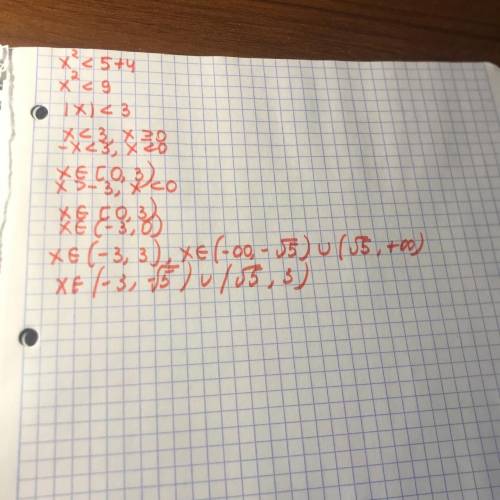 x² < 5+4
x² < 9
|x| < 3
x < 3, x ≥ 0
-x < 3, x < 0
x ∈ [0, 3)
x > -3, x < 0
x ∈ [0, 3)
x ∈ (-3, 0)
x ∈ (-3, 3), x ∈ (-∞, -√5) ∪ (√5, +∞)
x ∈ (-3, -√5) ∪ (√5, 3)